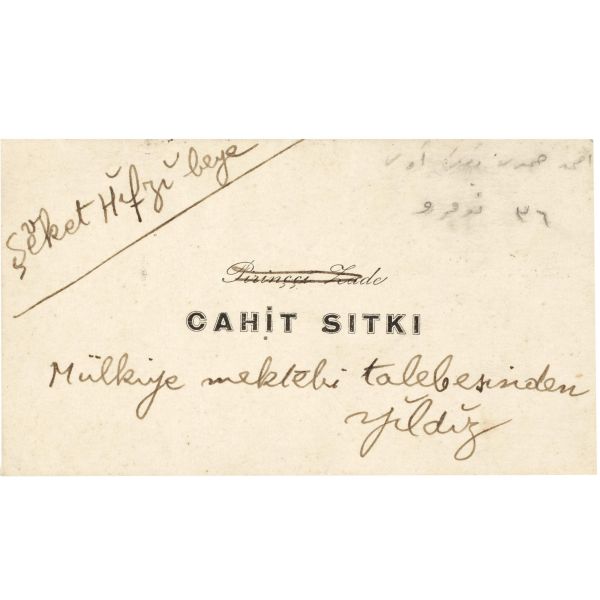 Şevket Hıfzı beye
نومرو ٣٦
Pirinççi Zade
CAHİT SITKI
Mülkiye mektebi talebesinden
yıldız